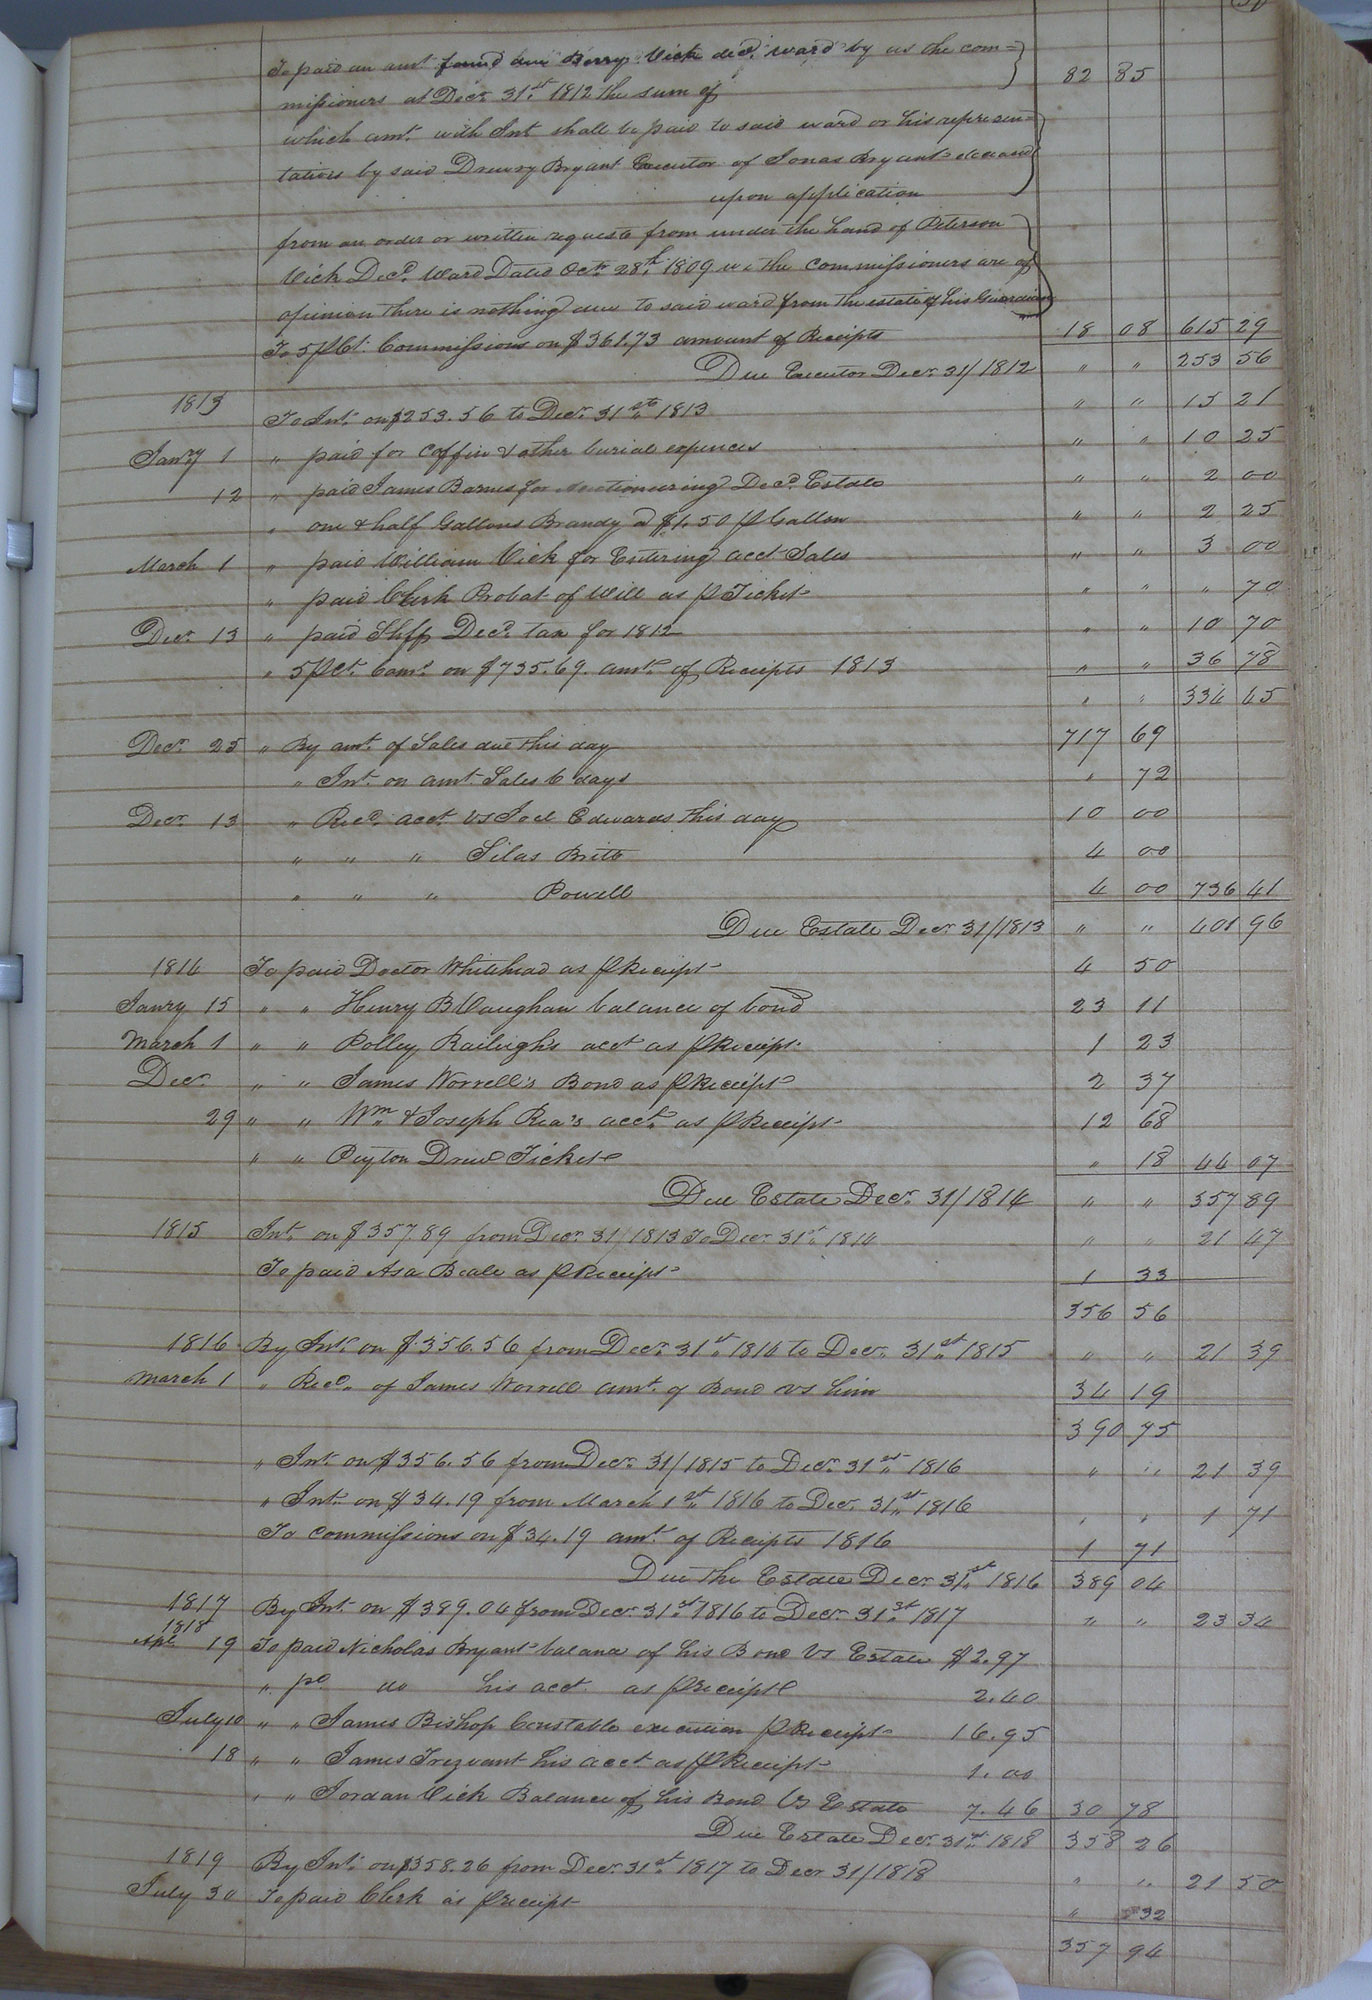 To paid an amt. found due Berry Vick decd. ward by us the com=
missioners at Decr. 31st. 1812 the sum of 82 85
which amt. with Int shall be paid to said ward or his represen=
tatives by said Drewry Bryant Executor of Jonas Bryant deceased
upon application
from an order or written request from under the hand of Peterson
Vick Decd. Ward Dated Octr. 28th. 1809 we the commissioners are of
opinion there is nothing due to said ward from the estate of his Guardian
To 5 pCt. Commissions on $361.73 amount of Receipts 18 08 615 29
Due Executor Decr. 31/1812 " " 253 56
1813 To Int. on $253.56 to Decr. 31st. 1813 " " 15 21
Janry 1 " paid for Coffin & other burial expences " " 10 25
12 " paid James Barnes for Auctioneering Decd. Estate " " 2 00
" one & half Gallons Brandy @ $1.50 p Gallon " " 2 25
March 1 " paid William Vick for Entering acct Sales " " 3 00
" paid Clerk Probat of Will as p Ticket " " " 70
Decr. 13 " paid Shff Decd. tax for 1812 " " 10 70
" 5 pCt. Coms. on $735.69. amt. of Receipts 1813 " " 36 78
" " 334 45
Decr. 25 " By amt. of Sales due this day 717 69
" Int. on amt Sales 6 days " 72
Decr. 13 " Recd. acct. vs Joel Edwards this day 10 00
" " " Silas Britt 4 00
" " " Powell 4 00 736 41
Due Estate Decr 31/1813 " " 401 96
1814 To paid Doctor Whitehead as p Receipt 4 50
Janry 15 " " Henry B Vaughan balance of bond 23 11
March 1 " " Polley Raileigh's acct as p Receipt 1 23
Decr. " " James Worrell's Bond as p Receipt 2 37
29 " " Wm. & Joseph Rea's acct. as p Receipt 12 68
" " Peyton Drew Ticket " 18 44 07
Due Estate Decr. 31/1814 " " 357 89
1815 Int. on $357.89 from Decr. 31/1813 To Decr 31st. 1814 " " 21 47
To paid Asa Beale as p Receipt 1 33
356 56
1816 By Int. on $356.56 from Decr. 31st. 1814 to Decr. 31st. 1815 " " 21 39
March 1 " Recd. of James Worrell amt. of Bond vs him 34 19
390 75
" Int. on $356.56 from Decr. 31/1815 to Decr. 31st. 1816 " " 21 39
" Int. on $34.19 from March 1st. 1816 to Decr. 31st. 1816 " " 1 71
To commissions on $34.19 amt. of Receipts 1816 1 71
Due the Estate Decr. 31st. 1816 389 04
1817 By Int. on $389.04 from Decr. 31st. 1816 to Decr. 31st. 1817 " " 23 34
1818
Apl 19 To paid Nicholas Bryant balance of his Bond vs Estate $2.97
" pd do his acct. as p Receipt 2.40
July 10 " " James Bishop Constable execution p Receipt 16.95
18 " " James Trezvant his acct as p Receipt 1.00
" " Jordan Vick Balance of his Bond vs Estate 7.46 30 78
Due Estate Decr. 31st. 1818 358 26
1819 By Int. on $358.26 from Decr. 31st. 1817 to Decr 31/1818 " " 21 50
July 30 To paid Clerk as p Receipt " 32
357 94